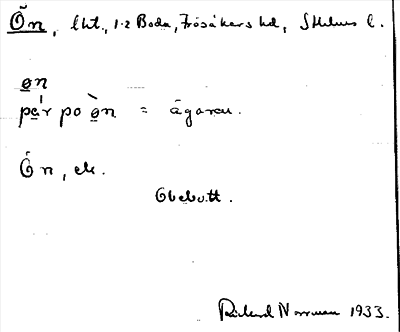 Ön, lht., 1-2 Boda, Frösåkers hd, Sthlms l.
ǫn
pǽr po ǫ̀n = ägaren.
Ön, ek.
Obebott.
Rickard Norrman 1933.